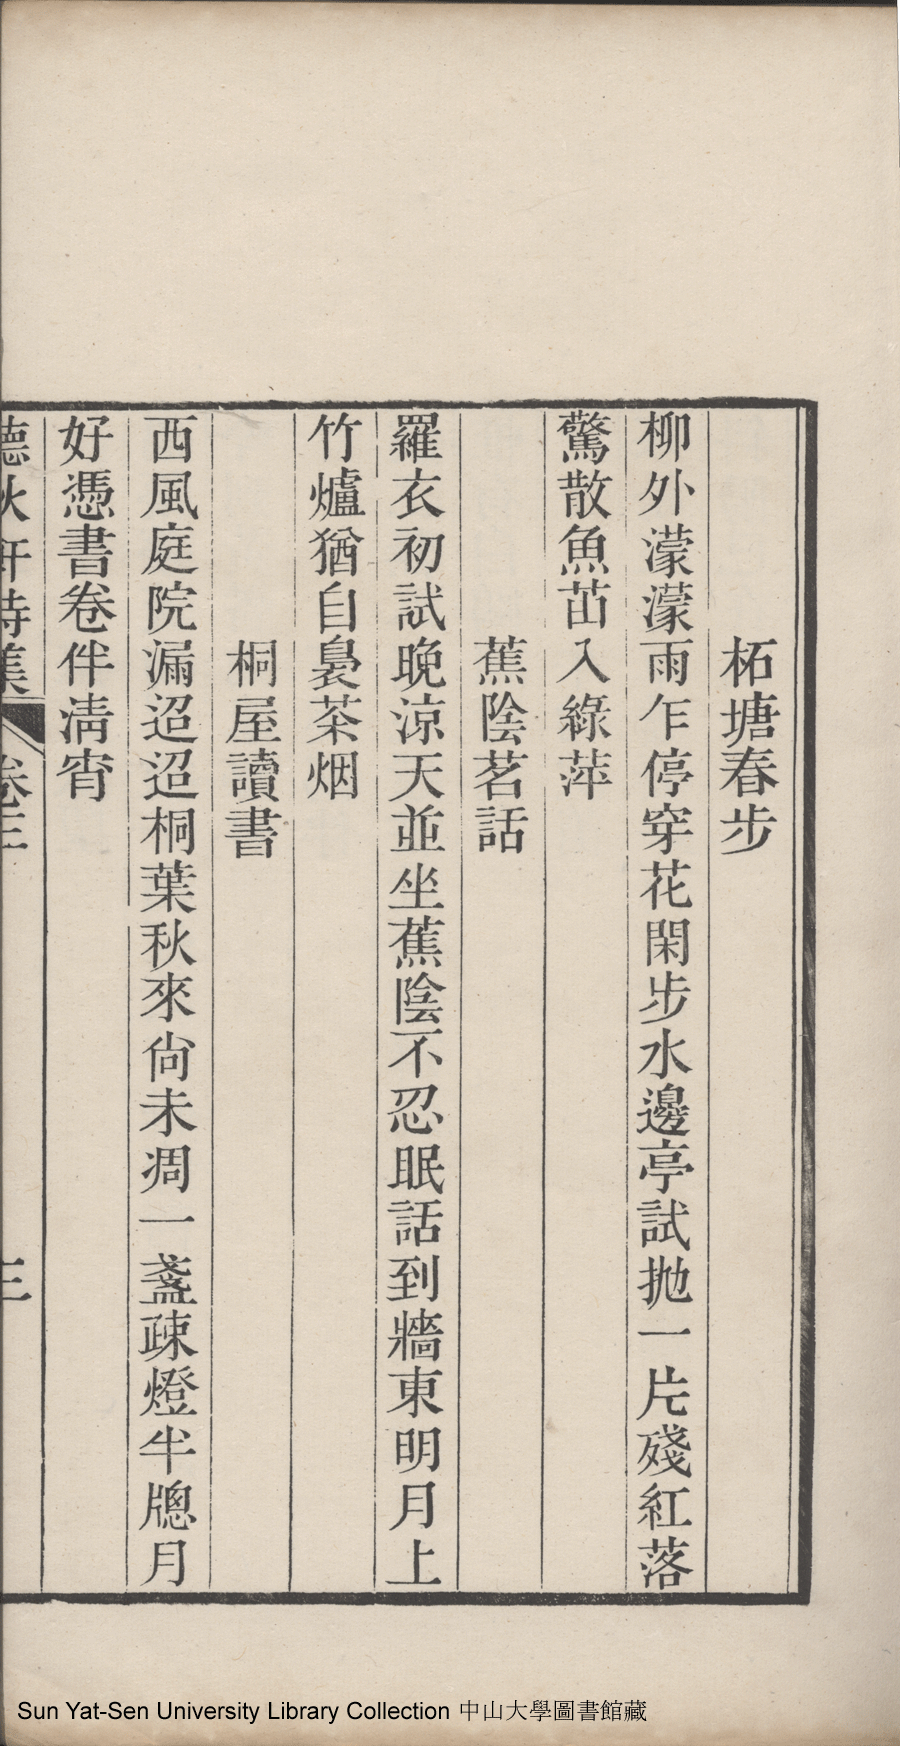 柘塘春步
柳外濛濛雨乍停穿花閑步水邊亭試拋一片殘紅落
驚散魚苗入綠萍
蕉陰茗話
羅衣初試晚涼天並坐蕉陰不忍眠話到牆東明月上
竹爐猶自裊茶烟
桐屋讀書
西風庭院漏迢迢桐葉秋來尙未凋一盞疎燈半牕月
好憑書卷伴淸宵
聽秋軒詩集 卷三 三
Sun Yat-Sen University Library Collection 中山大學圖書館藏